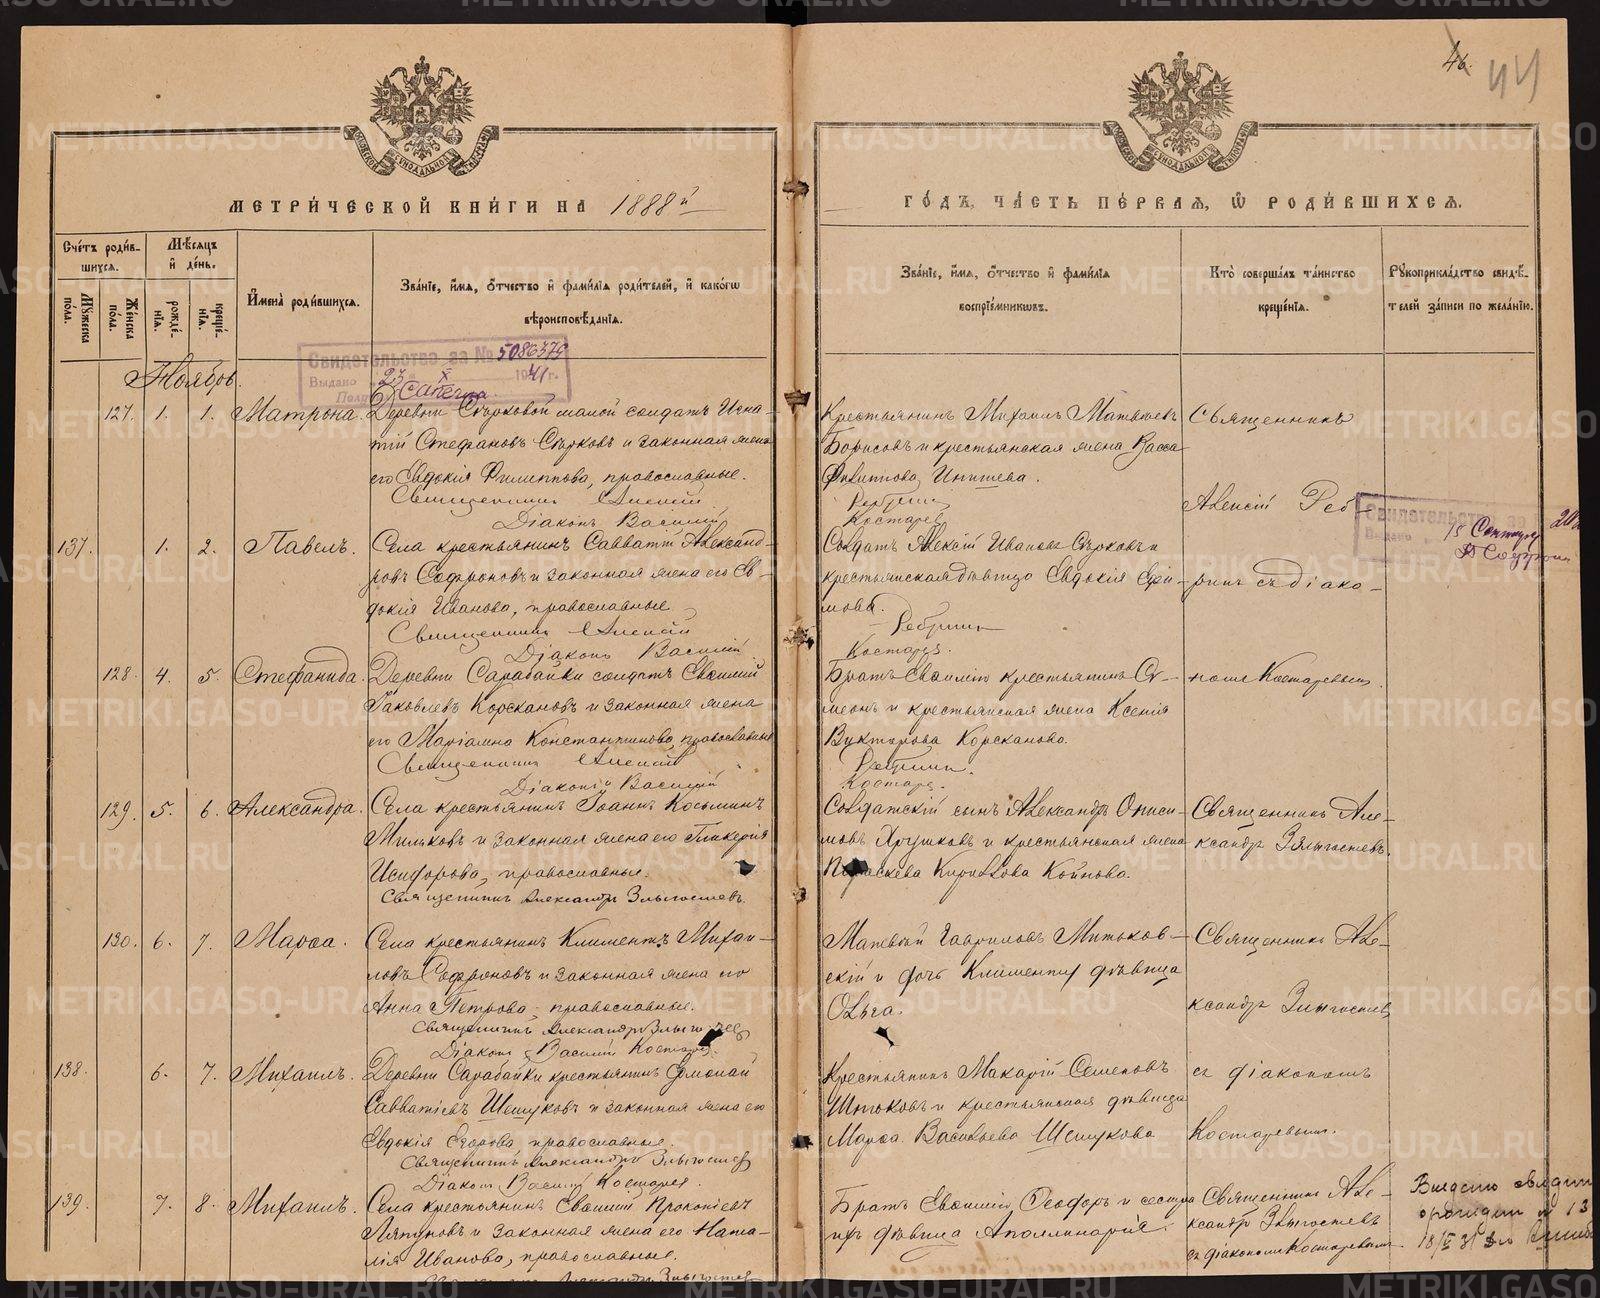 46.
44
МЕТРИ́ЧЕСКОЙ КНИ́ГИ НА 1888й
ГО́ДЪ, ЧА́СТЬ ПЕ́РВАЯ, Ѡ РОДИ́ВШИХСЯ.
Сче́тъ роди́в-
шихся.
Мѣ́сяцъ
и́ де́нь.
Му́жеска
по́ла.
Же́нска
по́ла.
рожде́-
нїя.
креще́-
нїя.
И҆мена̀ роди́вшихся.
Зва́нїе, и́мя, о́тчество и҆ фами́лїя роди́телей, и҆ како́гѡ
вѣроисповѣ́данїя.
Зва́нїе, и́мя, о́тчество и҆ фами́лїя
воспрїе́мникѡвъ.
Кто̀ соверша́лъ та́инство
креще́нїя.
Рꙋкоприкла́дство свидѣ́-
телей за́писи по жела́нїю.
Свидетельство за № 5086375
Выдано 23 X 1941 г.
Ноябрь.
127. 1. 1. Матрона.
Деревни Сѣрковой малой солдатъ Игна-
тій Стефановъ Сѣрковъ и законная жена
его Евдокія Филиппова, православные.
Священникъ Алексій
Діаконъ Василій
Крестьянинъ Михаилъ Матѳеевъ
Борисовъ и крестьянская жена Васса
Филиппова
Ребринъ
Костаревъ
Священникъ
Алексій Реб-
ринъ съ діако-
номъ Костаревымъ.
137. 1. 2. Павелъ.
Села крестьянинъ Савватій Александ-
ровъ Софроновъ и законная жена его Ев-
докія Иванова, православные
Священникъ Алексій
Діаконъ Василій
Солдатъ Алексій Ивановъ Сѣрковъ и
крестьянская дѣвица Евдокія Ефи-
мова.
Ребринъ
Костаревъ.
Свидетельство за
Выдано
15
128. 4. 5. Стефанида.
Деревни Сарабайки солдатъ Евѳимій
Яковлевъ Корскановъ и законная жена
его Маріамна Константинова, православные
Священникъ Алексій
Діаконъ Василій
Братъ Евѳимія крестьянинъ Си-
меонъ и крестьянская жена Ксенія
Викторова Корсканова.
Ребринъ.
Костарев.
129. 5. 6. Александра.
Села крестьянинъ Іоаннъ Косьминъ
Мильковъ и законная жена его Гликерія
Исидорова, православные.
Священникъ Александръ Злыгостевъ.
Солдатскій сынъ Александръ Ониси-
мовъ Хрушковъ и крестьянская жена
Параскева Кириллова Койнова.
Священникъ Але-
ксандръ Злыгостевъ.
130. 6. 7. Марѳа.
Села крестьянинъ Климентъ Михаи-
ловъ Софроновъ и законная жена его
Анна Петрова, православные.
Священникъ Александръ Злыгостев
Діаконъ Василій Костарев.
Матвѣй Гавриловъ Митьков-
скій и дочь Климента дѣвица
Ольга.
Священникъ Але-
ксандръ Злыгостев
138. 6. 7. Михаилъ.
Деревни Сарабайки крестьянинъ
Савватіевъ Шешуковъ и законная жена его
Евдокія Егорова, православные.
Священникъ Александръ Злыгостев
Діаконъ Василій Костарев.
Крестьянинъ Макарій Семеновъ
и крестьянская дѣвица
Марѳа Васильева Шешукова
съ діакономъ
Костаревымъ.
139. 7. 8. Михаилъ.
Села крестьянинъ Евѳимій Прокопіевъ
Ляпуновъ и законная жена его Ната-
лія Иванова, православные.
Александръ Злыгостев
Братъ Евѳимія Ѳеодоръ и сестра
ихъ дѣвица Аполлинарія.
Священникъ Але-
ксандръ Злыгостев
съ діакономъ Костаревымъ
METRIKI.GASO-URAL.RU